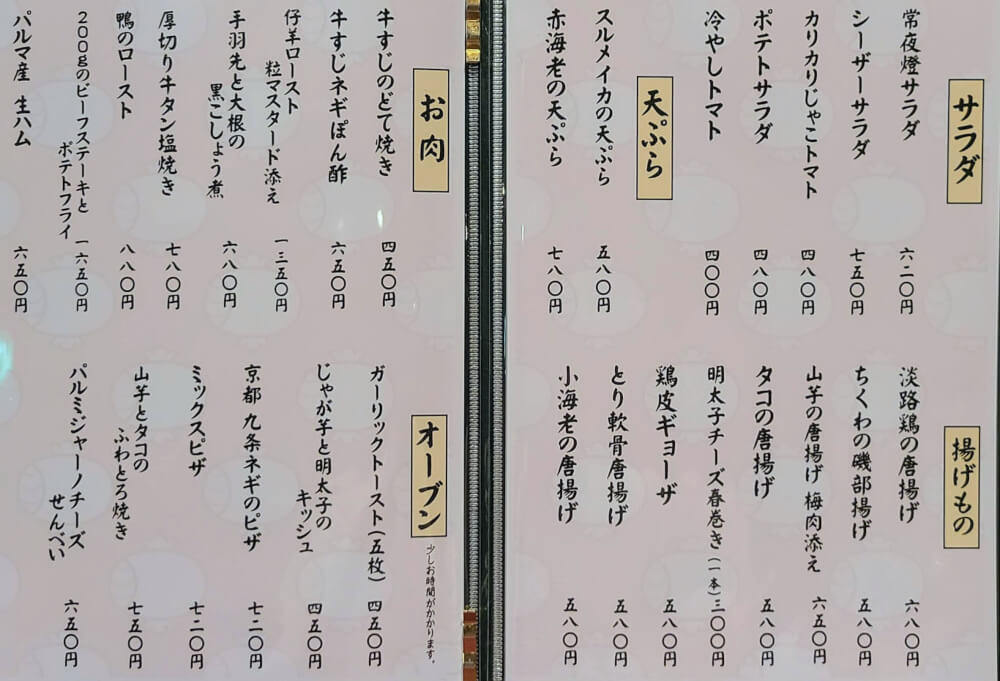 サラダ
常夜燈サラダ 六二〇円
シーザーサラダ 七五〇円
カリカリじゃこトマト 四八〇円
ポテトサラダ 四八〇円
冷やしトマト 四〇〇円
天ぷら
スルメイカの天ぷら 五八〇円
赤海老の天ぷら 七八〇円
揚げもの
淡路鶏の唐揚げ 六八〇円
ちくわの磯部揚げ 五八〇円
山芋の唐揚げ 梅肉添え 六五〇円
タコの唐揚げ 五八〇円
明太子チーズ春巻き(一本) 三〇〇円
鶏皮ギョーザ 五八〇円
とり軟骨唐揚げ 五八〇円
小海老の唐揚げ 五八〇円
お肉
牛すじのどて焼き 四五〇円
牛すじネギぽん酢 六五〇円
仔羊ロースト
粒マスタード添え 一三五〇円
手羽先と大根の
黒ごしょう煮 六八〇円
厚切り牛タン塩焼き 七八〇円
鴨のロースト 八八〇円
200gのビーフステーキと
ポテトフライ 一六五〇円
パルマ産 生ハム 六五〇円
オーブン
少しお時間がかかります。
ガーリックトースト(五枚) 四五〇円
じゃが芋と明太子の
キッシュ 四五〇円
京都 九条ネギのピザ 七二〇円
ミックスピザ 七二〇円
山芋とタコの
ふわとろ焼き 七五〇円
パルミジャーノチーズ
せんべい 六五〇円